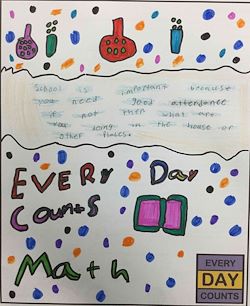 School is important because
you need good attendance
if not then what are
you doing in the house or
other places.
EVERy Day
Counts
Math
EVERY
DAY
COUNTS